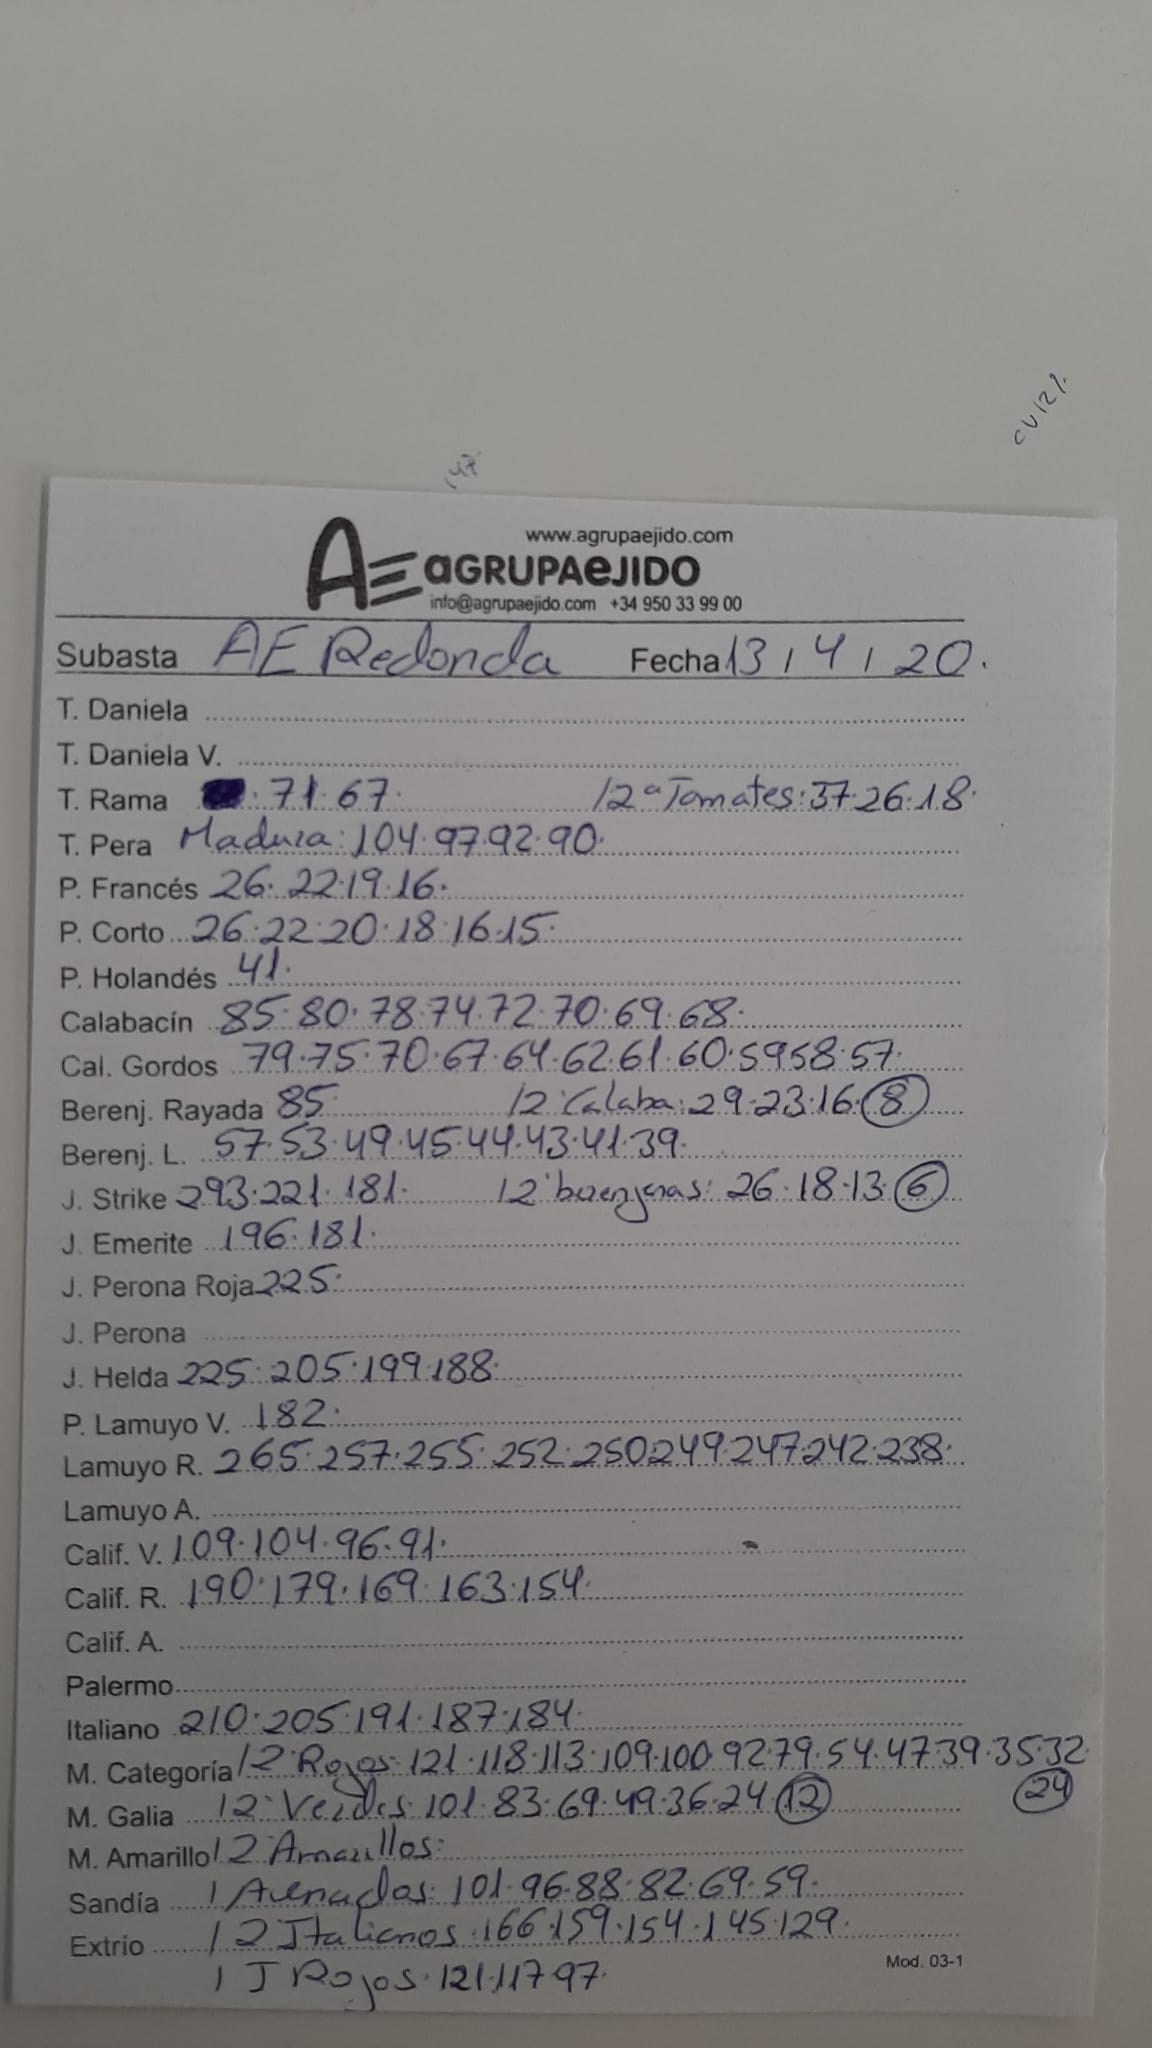 www.agrupaejido.com
AE aGRUPAeJIDO
info@agrupaejido.com +34 950 33 99 00
Subasta AE Redonda Fecha 13 / 4 / 20.
T. Daniela
T. Daniela V.
T. Rama 71. 67. /2ª Tomates: 37.26.18.
T. Pera Madura: 104.97.92.90.
P. Francés 26. 22.19.16.
P. Corto 26.22.20.18.16.15.
P. Holandés 41.
Calabacín 85.80.78.74.72.70.69.68.
Cal. Gordos 79.75.70.67.64.62.61.60.59 58.57.
Berenj. Rayada 85. /2ª Calaba: 29.23.16. 8
Berenj. L. 57.53.49.45.44.43.41.39.
J. Strike 293.221.181. /2ª berenjenas: 26.18.13. 6
J. Emerite 196.181.
J. Perona Roja 225.
J. Perona
J. Helda 225.205.199.188.
P. Lamuyo V. 182.
Lamuyo R. 265.257.255.252.250.249.247.242.238.
Lamuyo A.
Calif. V. 109.104.96.91.
Calif. R. 190.179.169.163.154.
Calif. A.
Palermo
Italiano 210.205.191.187.184.
M. Categoría /2ª Rojos: 121.118.113.109.100.92.79.54.47.39.35.32 24
M. Galia /2ª Verdes: 101.83.69.49.36.24. 12
M. Amarillo /2 Amarillos:
Sandía / Asenados: 101.96.88.82.69.59.
Extrio /2 Italianos: 166.159.154.145.129.
/ J Rojos: 121.117.97.
Mod. 03-1